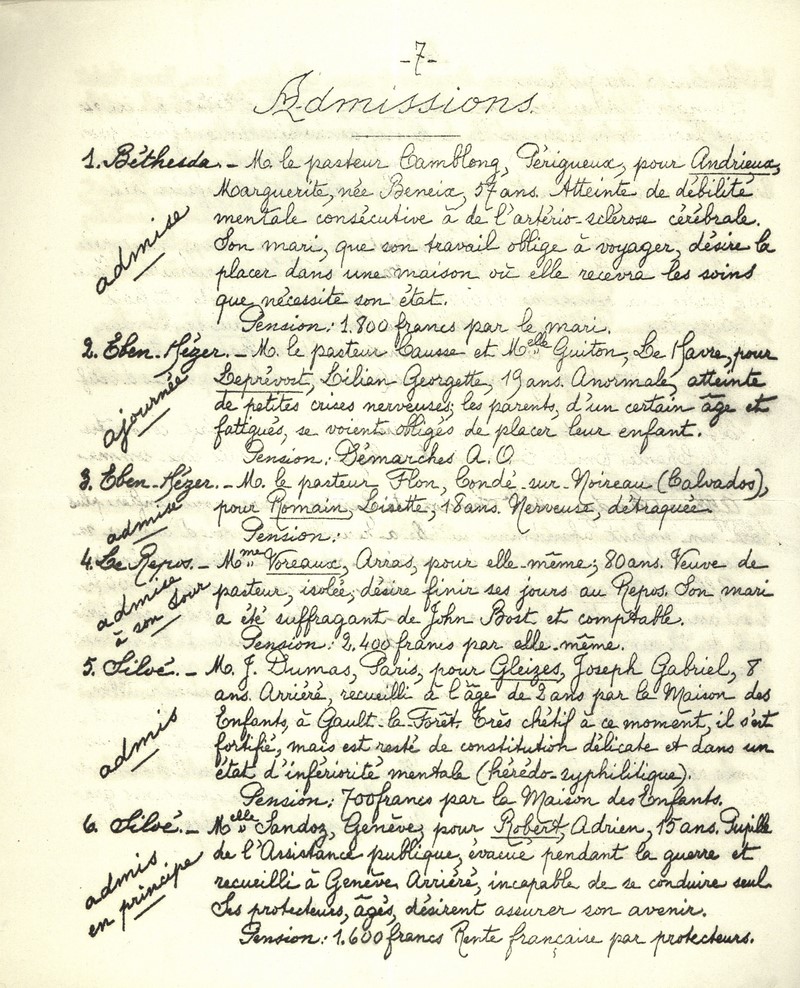 -7-
Admissions.
1. Béthesda. - M. le pasteur Camblong, Périgueux, pour Andrieux,
Marguerite, née Beneix, 57 ans. Atteinte de débilité
mentale consécutive à de l'artério-sclérose cérébrale.
admise
Son mari, que son travail oblige à voyager, désire la
placer dans une maison où elle recevra les soins
que nécessite son état.
Pension: 1.800 francs par le mari.
2. Eben-Hézer. - M. le pasteur Causse et Melle Guiton, Le Havre, pour
Leprévost, Lilian Georgette, 19 ans. Anormale, atteinte
ajournée
de petites crises nerveuses; les parents, d'un certain âge et
fatigués, se voient obligés de placer leur enfant.
Pension: Démarches A.O.
3. Eben-Hézer. - M. le pasteur Flon, Condé-sur-Noireau (Calvados),
admise
pour Romain, Lisette, 18 ans. Nerveuse, détraquée.
Pension:
4. Le Repos. - Mme Voreaux, Arras, pour elle-même; 80 ans. Veuve de
admise
à son tour
pasteur, isolée, désire finir ses jours au Repos. Son mari
a été suffragant de John Bost et comptable.
Pension: 2.400 francs par elle-même.
5. Siloé. - M. J. Dumas, Paris, pour Gleizes, Joseph Gabriel, 8
ans. Arriéré, recueilli à l'âge de 2 ans par la Maison des
admis
Enfants, à Gault-la-Forêt. Très chétif à ce moment, il s'est
fortifié, mais est resté de constitution délicate et dans un
état d'infériorité mentale (hérédo-syphilitique).
Pension: 700 francs par la Maison des Enfants.
6. Siloé. - Melle Sandoz, Genève, pour Robert, Adrien, 15 ans. Pupille
de l'Assistance publique, évacué pendant la guerre et
admis
en principe
recueilli à Genève. Arriéré, incapable de se conduire seul.
Ses protecteurs, âgés, désirent assurer son avenir.
Pension: 1.600 francs Rente française par protecteurs.